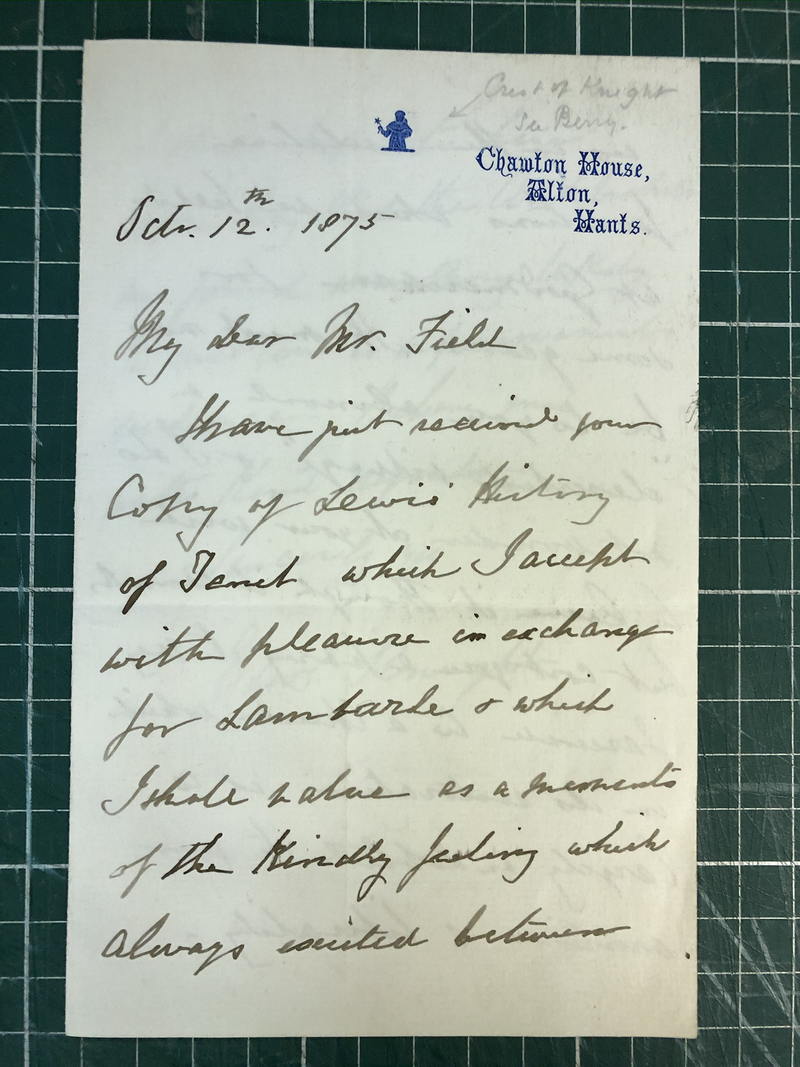 Crest of Knight
See Berry.
Chawton House,
Alton,
Hants.
Octr. 12th. 1875
My dear Mr. Field
I have just received your
Copy of Lewis' History
of Tenet which I accept
with pleasure in exchange
for Lambarde & which
I shale value as a memento
of the Kindly feeling which
always existed between